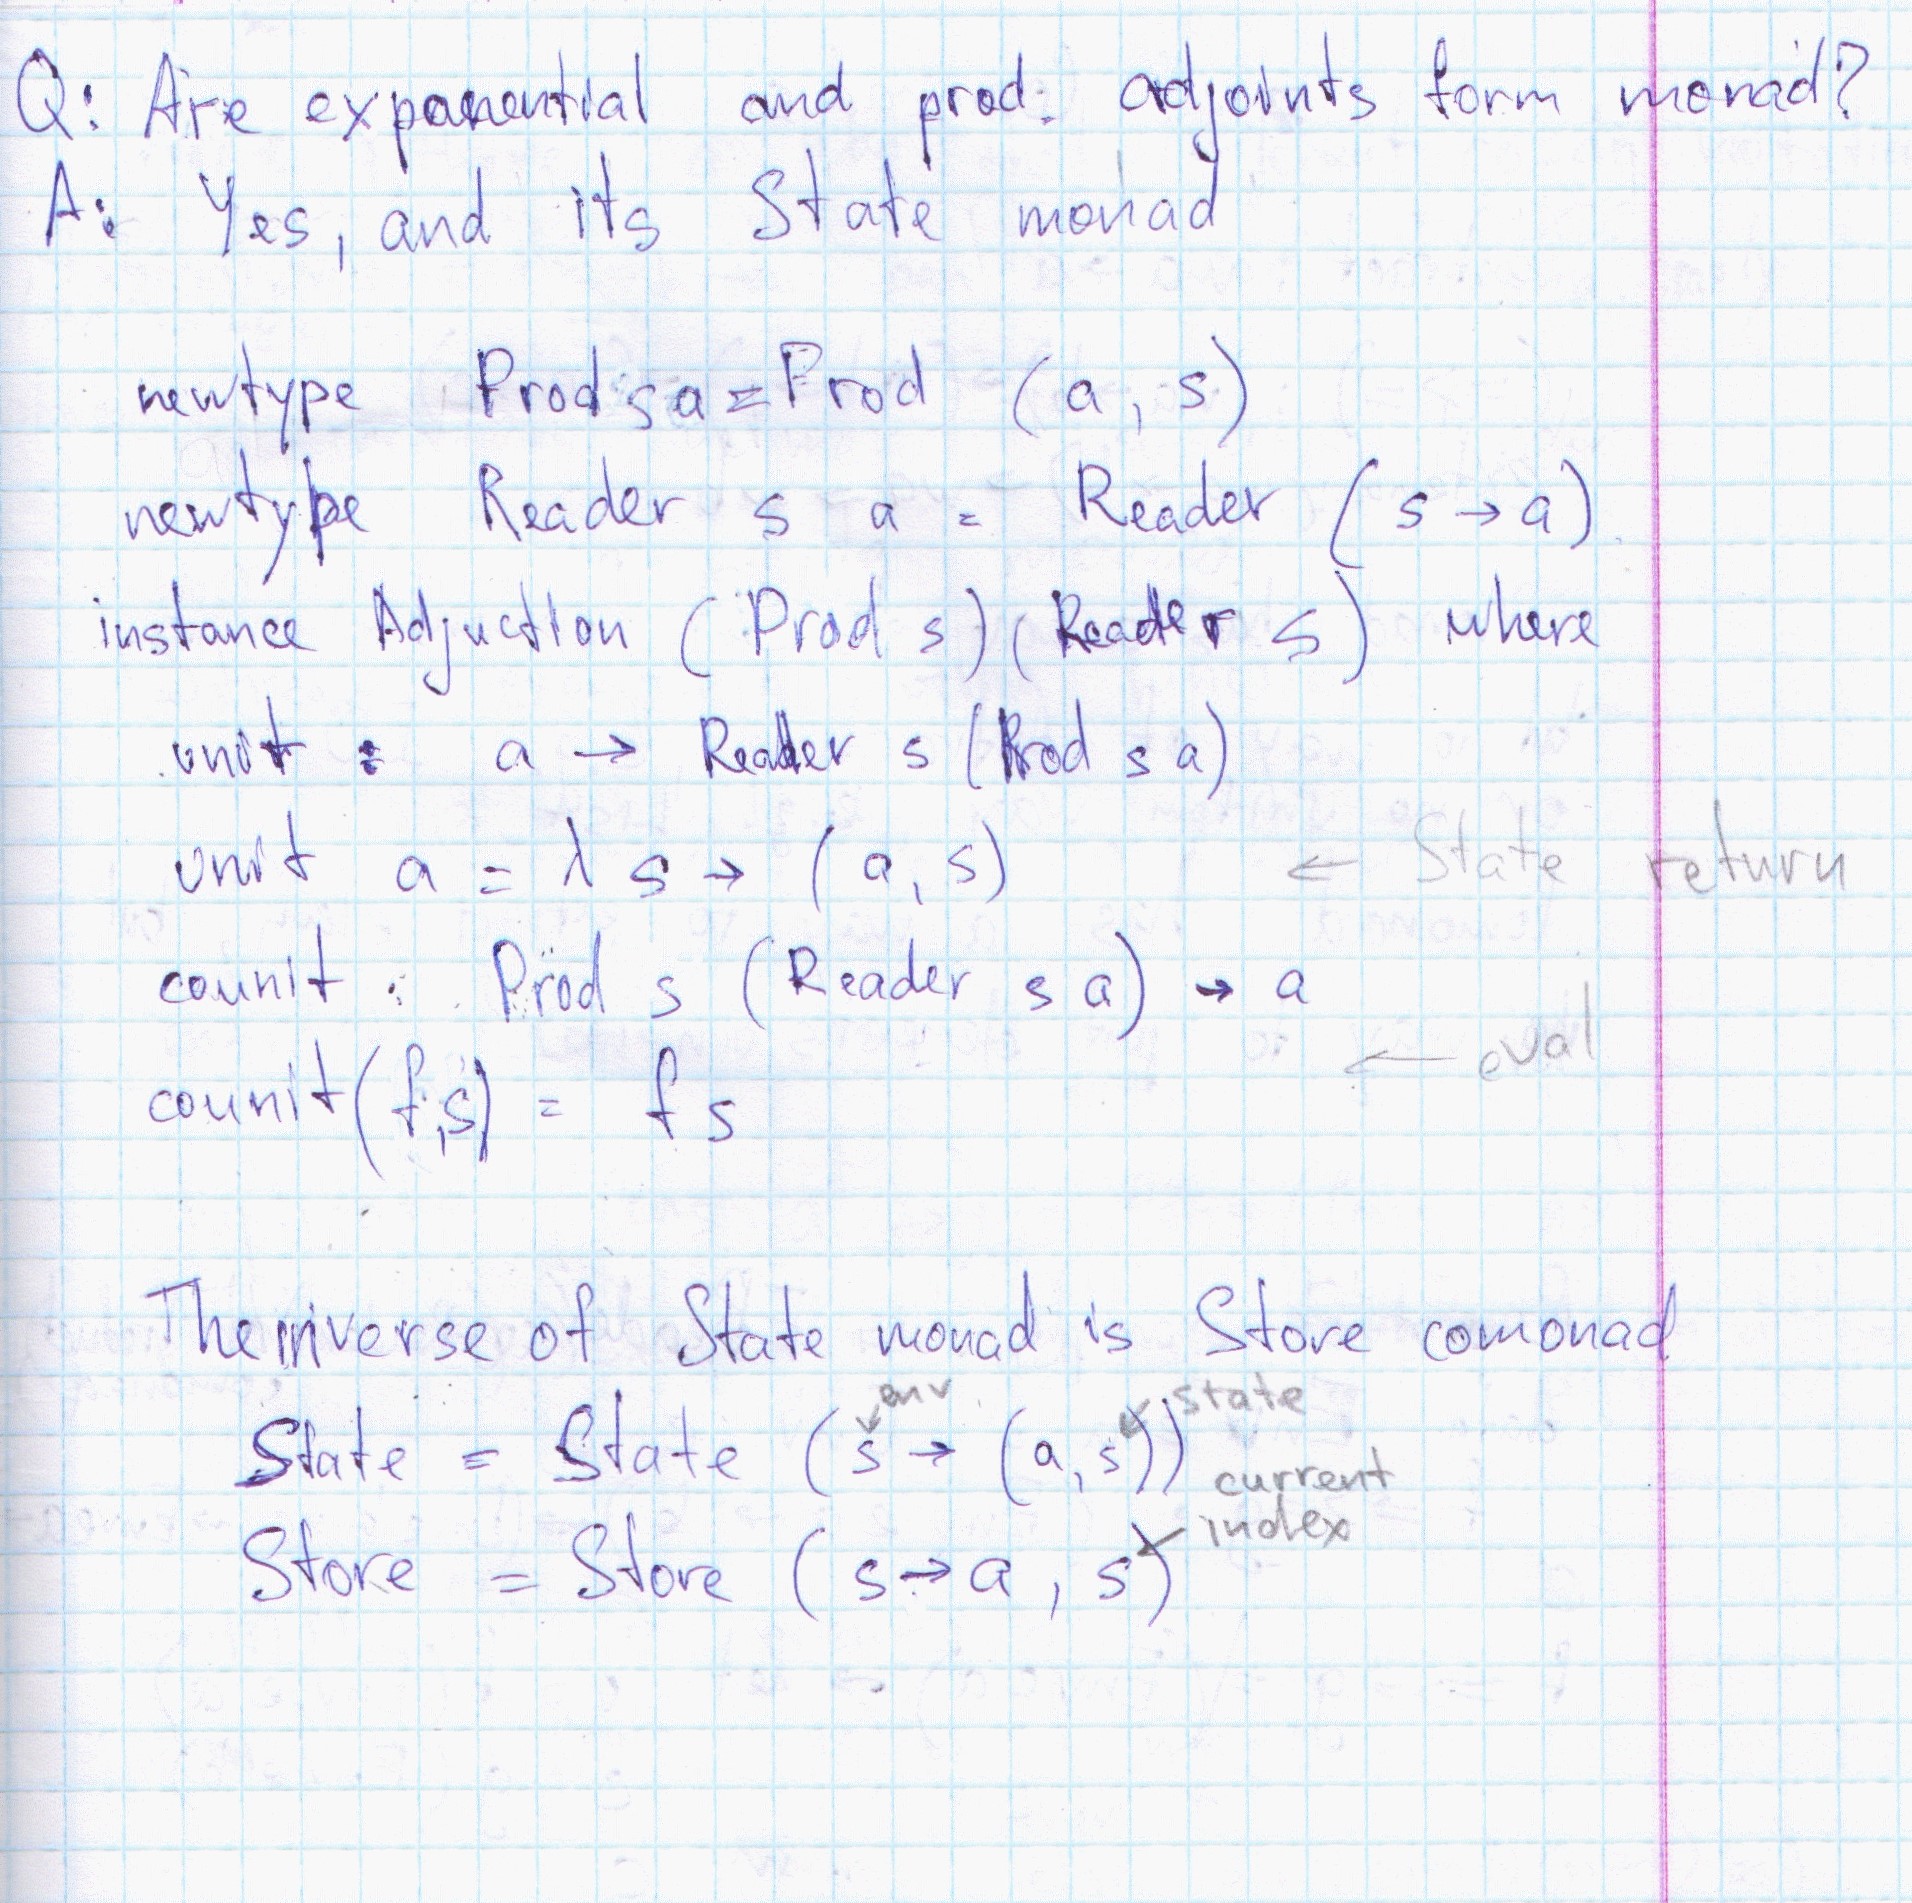 Q: Are exponential and prod. adjoints form monad?
A: Yes, and its State monad
newtype Prod s a = Prod (a, s)
newtype Reader s a = Reader (s → a)
instance Adjuction (Prod s) (Reader s) where
unit : a → Reader s (Prod s a)
unit a = λ s → (a, s) ← State return
counit : Prod s (Reader s a) → a
← eval
counit (f, s) = f s
The inverse of State monad is Store comonad
env state
State = State (s → (a, s))
current
index
Store = Store (s → a, s)